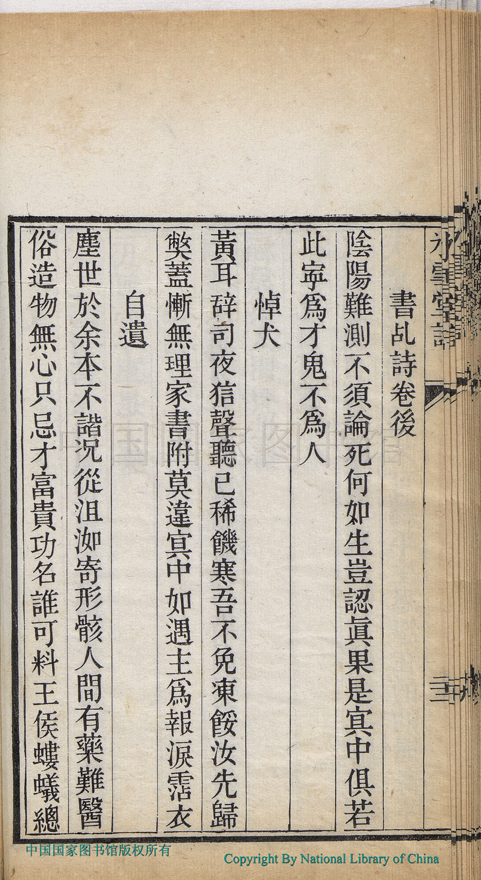 書乩詩卷後
陰陽難測不須論死何如生豈認眞果是冥中俱若
此寧爲才鬼不爲人
悼犬
黃耳辞司夜狺聲聽已稀饑寒吾不免凍餒汝先歸
獘蓋慚無理家書附莫違冥中如遇主爲報淚霑衣
自遣
塵世於余本不諧况從沮洳寄形骸人間有藥難醫
俗造物無心只忌才富貴功名誰可料王侯螻蟻總
中国国家图书馆
中国国家图书馆版权所有
Copyright By National Library of China